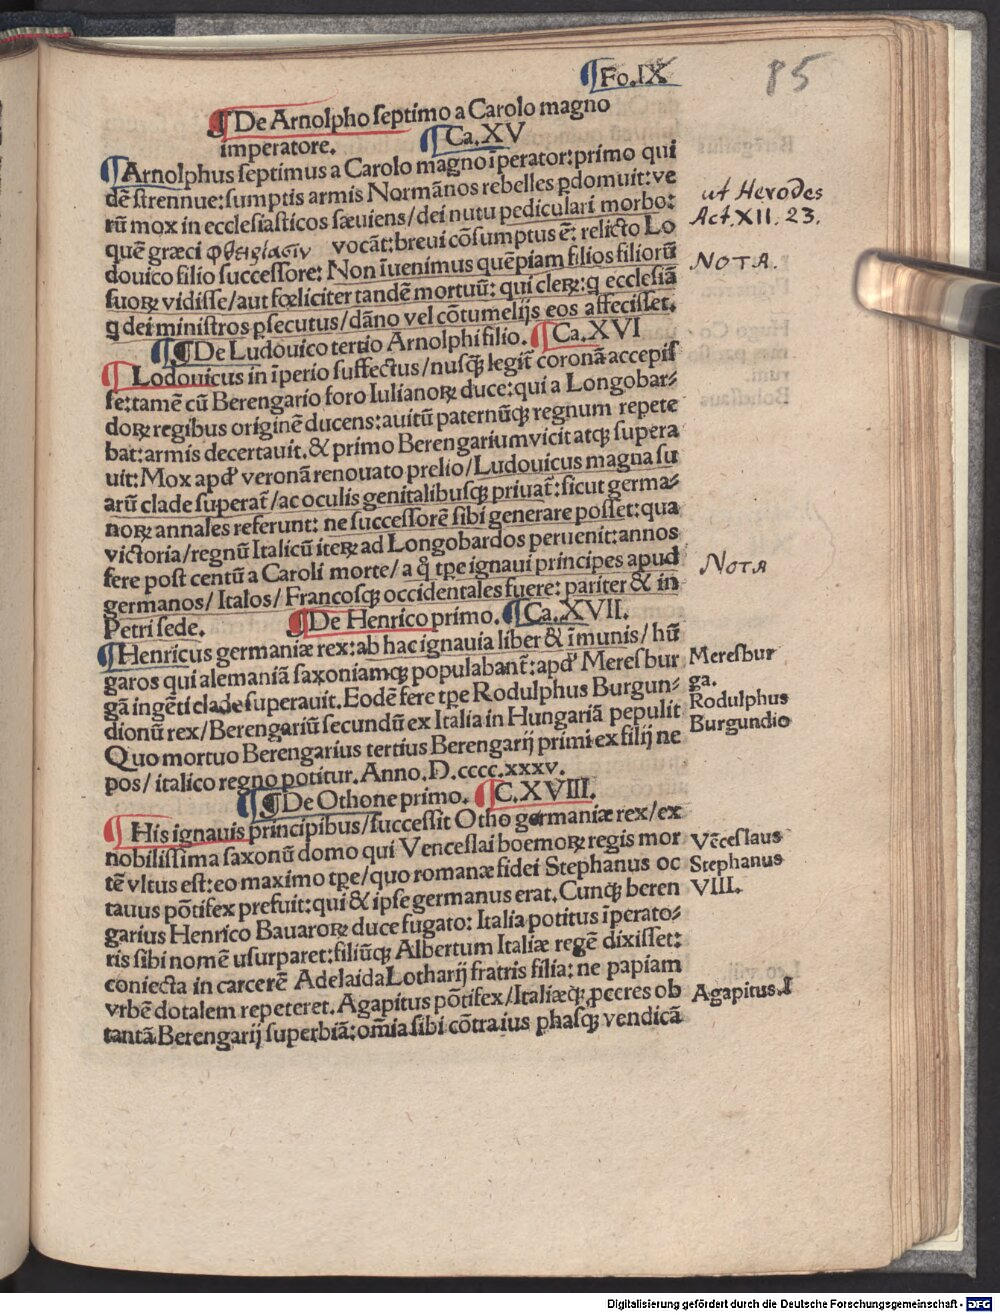 ¶Fo.IX
85
¶De Arnolpho septimo a Carolo magno
imperatore. ¶Ca.XV
¶Arnolphus septimus a Carolo magno īperator:primo qui
dē strennue:sumptis armis Normānos rebelles ꝑdomuit:ve
rū mox in ecclesiasticos sæuiens/dei nutu pediculari morbo:
ut Herodes
Act.XII.23.
quē græci φθειρίασιν vocāt:breui cōsumptus ē: relicto Lo
douico filio successore: Non īuenimus quēpiam filios filiorū
NOTA.
suoꝝ vidisse/aut fœliciter tandē mortuū: qui cleꝝ:ꝗ ecclesiā
ꝗ dei ministros ꝑsecutus/dāno vel cōtumelijs eos affecisset.
¶De Ludouico tertio Arnolphi filio. ¶Ca.XVI
¶Lodouicus in īperio suffectus/nusꝗ̄ legit̄ coronā accepis
se:tamē cū Berengario foro Iulianoꝝ duce:qui a Longobar⸗
doꝝ regibus originē ducens:auitū paternūꝗ regnum repete
bat:armis decertauit.& primo Berengarium vicit atꝗ supera
uit:Mox apd' veronā renouato prelio/Ludouicus magna su
arū clade superat̄/ac oculis genitalibusꝗ priuat̄:sicut germa⸗
noꝝ annales referunt: ne successorē sibi generare posset:qua
victoria/regnū Italicū iteꝝ ad Longobardos peruenit:annos
fere post centū a Caroli morte/a ꝗ̊ tꝑe ignaui principes apud
NOTA
germanos/Italos/Francosꝗ occidentales fuere: pariter & in
Petri sede. ¶De Henrico primo. ¶Ca.XVII.
¶Henricus germaniæ rex:ab hac ignauia liber & īmunis/hū
garos qui alemaniā saxoniamꝗ populabant̄:apd' Meresbur
Meresbur
gā ingēti clade superauit. Eodē fere tꝑe Rodulphus Burgun⸗
ga.
Rodulphus
dionū rex/Berengariū secundū ex Italia in Hungariā pepulit
Burgundio
Quo mortuo Berengarius tertius Berengarij primi ex filij ne
pos/italico regno potitur.Anno.D.cccc.xxxv.
¶De Othone primo. ¶C.XVIII.
¶His ignauis principibus/successit Otho germaniæ rex/ex
nobilissima saxonū domo qui Venceslai boemoꝝ regis mor
Vēceslaus
tē vltus est:eo maximo tꝑe/quo romanæ fidei Stephanus oc
Stephanus
tauus pōtifex prefuit:qui & ipse germanus erat.Cunꝗ beren
VIII.
garius Henrico Bauaroꝝ duce fugato: Italia potitus īperato⸗
ris sibi nomē usurparet:filiūꝗ Albertum Italiæ regē dixisset:
coniecta in carcerē Adelaida Lotharij fratris filia: ne papiam
vrbē dotalem repeteret.Agapitus pōtifex/Italiæꝗ ꝓceres ob
Agapitus.I
tantā Berengarij superbiā:om̄ia sibi cōtra ius phasꝗ vendicā
Digitalisierung gefördert durch die Deutsche Forschungsgemeinschaft - DFG